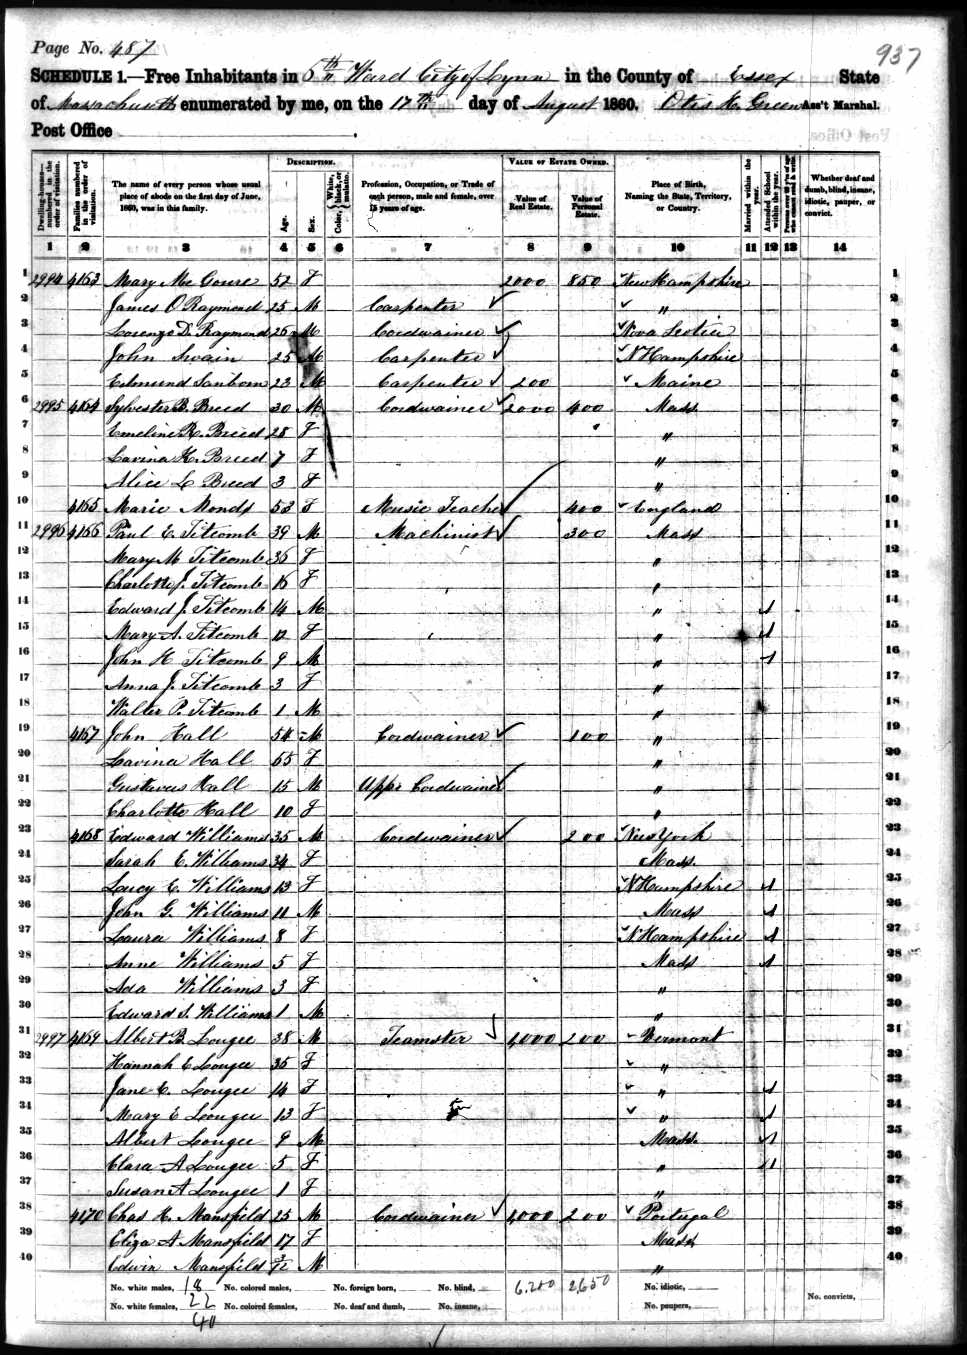 Page No. 487
937
SCHEDULE 1.—Free Inhabitants in 5th Ward City of Lynn in the County of Essex State
of Massachusetts enumerated by me, on the 17th day of August 1860. Otis H. Green Ass't Marshal.
Post Office
DESCRIPTION. VALUE OF ESTATE OWNED.
Dwelling-houses—numbered in the order of visitation. Families numbered in the order of visitation. The name of every person whose usual place of abode on the first day of June, 1860, was in this family. Age. Sex. Color, White, black, or mulatto. Profession, Occupation, or Trade of each person, male and female, over 15 years of age. Value of Real Estate. Value of Personal Estate. Place of Birth, Naming the State, Territory, or Country. Married within the year. Attended School within the year. Whether deaf and dumb, blind, insane, idiotic, pauper, or convict.
1 2 3 4 5 6 7 8 9 10 11 12 13 14
1 2994 4163 Mary Mc 52 F 2000 850 New Hampshire 1
2 James O Raymond 25 M Carpenter " 2
3 Lorenzo D. Raymond 26 M Cordwainer Nova Scotia 3
4 John Swain 25 M Carpenter N Hampshire 4
5 Edmund Sanborn 23 M Carpenter 200 Maine 5
6 2995 4164 Sylvester B. Breed 30 M Cordwainer 2000 400 Mass 6
7 Emeline R. Breed 28 F " 7
8 Lavina K. Breed 7 F " 8
9 Alice L Breed 3 F " 9
10 4165 Marie Monds 53 F Music Teacher 400 England 10
11 2996 4166 Paul E. Titcomb 39 M Machinist 300 Mass 11
12 Mary M Titcomb 36 F " 12
13 Charlotte J. Titcomb 16 F " 13
14 Edward J. Titcomb 14 M " 1 14
15 Mary A. Titcomb 12 F " 1 15
16 John H Titcomb 9 M " 1 16
17 Anna J. Titcomb 3 F " 17
18 Walter P. Titcomb 1 M " 18
19 4167 John Hall 54 M Cordwainer 100 " 19
20 Lavina Hall 55 F " 20
21 Gustavus Hall 15 M Cordwainer " 21
22 Charlotte Hall 10 F " 22
23 4168 Edward Williams 35 M Cordwainer 200 New York 23
24 Sarah E. Williams 34 F Mass. 24
25 Lucy E. Williams 13 F N Hampshire 1 25
26 John G. Williams 11 M Mass 1 26
27 Laura Williams 8 F N Hampshire 1 27
28 Anne Williams 5 F Mass 1 28
29 Ada Williams 3 F " 29
30 Edward S. Williams 1 M " 30
31 2997 4169 Albert B. Lougee 38 M Teamster 1,000 200 Vermont 31
32 Hannah E Lougee 35 F " 32
33 Jane E. Lougee 14 F " 1 33
34 Mary E Lougee 13 F " 1 34
35 Albert Lougee 9 M Mass. 1 35
36 Clara A Lougee 5 F " 1 36
37 Susan A Lougee 1 F " 37
38 4170 Chas H. Mansfield 25 M Cordwainer 1,000 200 Portugal 38
39 Eliza A Mansfield 17 F Mass 39
40 Edwin Mansfield 3/12 M " 40
No. white males, 18 No. colored males, No. foreign born, No. blind, 6.200 2,650 No. idiotic,
No. white females, 22 No. colored females, No. deaf and dumb, No. insane, No. paupers, No. convicts,
40